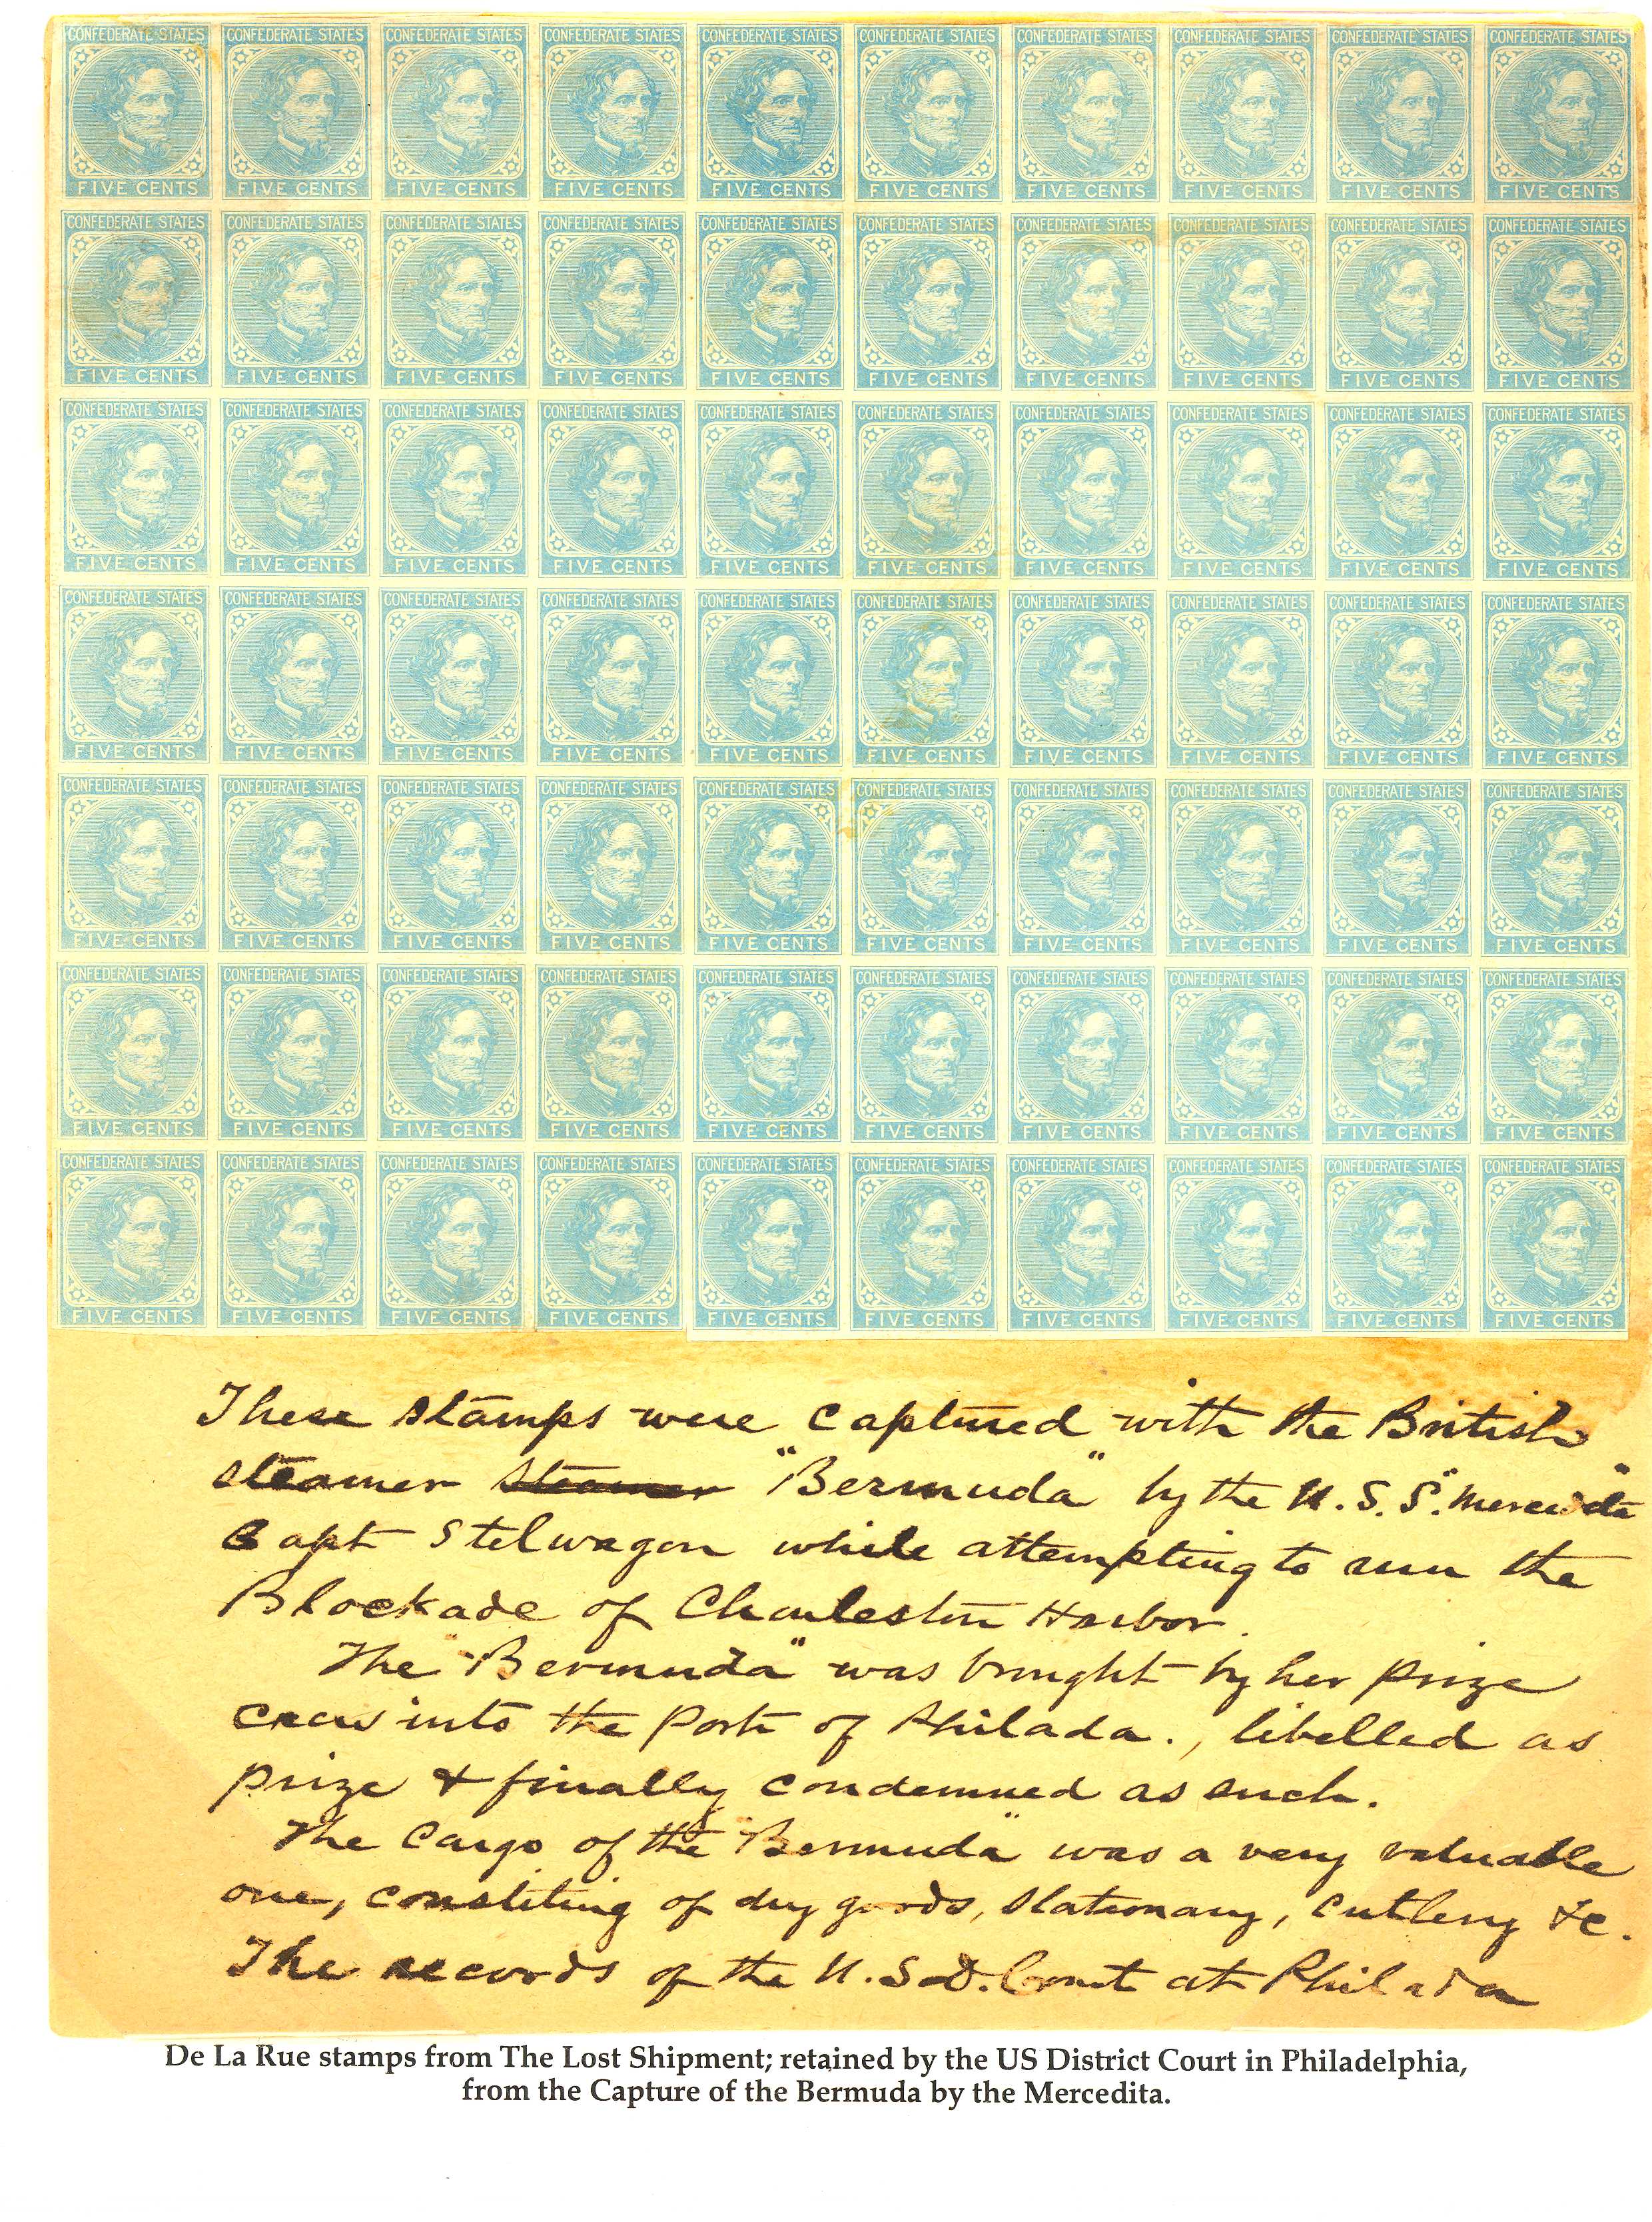 CONFEDERATE STATES CONFEDERATE STATES CONFEDERATE STATES CONFEDERATE STATES CONFEDERATE STATES CONFEDERATE STATES CONFEDERATE STATES CONFEDERATE STATES CONFEDERATE STATES CONFEDERATE STATES
FIVE CENTS FIVE CENTS FIVE CENTS FIVE CENTS FIVE CENTS FIVE CENTS FIVE CENTS FIVE CENTS FIVE CENTS FIVE CENTS
CONFEDERATE STATES CONFEDERATE STATES CONFEDERATE STATES CONFEDERATE STATES CONFEDERATE STATES CONFEDERATE STATES CONFEDERATE STATES CONFEDERATE STATES CONFEDERATE STATES CONFEDERATE STATES
FIVE CENTS FIVE CENTS FIVE CENTS FIVE CENTS FIVE CENTS FIVE CENTS FIVE CENTS FIVE CENTS FIVE CENTS FIVE CENTS
CONFEDERATE STATES CONFEDERATE STATES CONFEDERATE STATES CONFEDERATE STATES CONFEDERATE STATES CONFEDERATE STATES CONFEDERATE STATES CONFEDERATE STATES CONFEDERATE STATES CONFEDERATE STATES
FIVE CENTS FIVE CENTS FIVE CENTS FIVE CENTS FIVE CENTS FIVE CENTS FIVE CENTS FIVE CENTS FIVE CENTS FIVE CENTS
CONFEDERATE STATES CONFEDERATE STATES CONFEDERATE STATES CONFEDERATE STATES CONFEDERATE STATES CONFEDERATE STATES CONFEDERATE STATES CONFEDERATE STATES CONFEDERATE STATES CONFEDERATE STATES
FIVE CENTS FIVE CENTS FIVE CENTS FIVE CENTS FIVE CENTS FIVE CENTS FIVE CENTS FIVE CENTS FIVE CENTS FIVE CENTS
CONFEDERATE STATES CONFEDERATE STATES CONFEDERATE STATES CONFEDERATE STATES CONFEDERATE STATES CONFEDERATE STATES CONFEDERATE STATES CONFEDERATE STATES CONFEDERATE STATES CONFEDERATE STATES
FIVE CENTS FIVE CENTS FIVE CENTS FIVE CENTS FIVE CENTS FIVE CENTS FIVE CENTS FIVE CENTS FIVE CENTS FIVE CENTS
CONFEDERATE STATES CONFEDERATE STATES CONFEDERATE STATES CONFEDERATE STATES CONFEDERATE STATES CONFEDERATE STATES CONFEDERATE STATES CONFEDERATE STATES CONFEDERATE STATES CONFEDERATE STATES
FIVE CENTS FIVE CENTS FIVE CENTS FIVE CENTS FIVE CENTS FIVE CENTS FIVE CENTS FIVE CENTS FIVE CENTS FIVE CENTS
CONFEDERATE STATES CONFEDERATE STATES CONFEDERATE STATES CONFEDERATE STATES CONFEDERATE STATES CONFEDERATE STATES CONFEDERATE STATES CONFEDERATE STATES CONFEDERATE STATES CONFEDERATE STATES
FIVE CENTS FIVE CENTS FIVE CENTS FIVE CENTS FIVE CENTS FIVE CENTS FIVE CENTS FIVE CENTS FIVE CENTS FIVE CENTS
These stamps were captured with the British
steamer steamer "Bermuda" by the U.S.S. "Mercedita"
Capt Stelwagon while attempting to run the
Blockade of Charleston Harbor.
The "Bermuda" was brought by her prize
crew into the Port of Philada., libelled as
prize & finally condemned as such.
The Cargo of the "Bermuda" was a very valuable
one, consisting of dry goods, stationary, cutlery &c.
The records of the U.S.D. Court at Philada
De La Rue stamps from The Lost Shipment; retained by the US District Court in Philadelphia,
from the Capture of the Bermuda by the Mercedita.